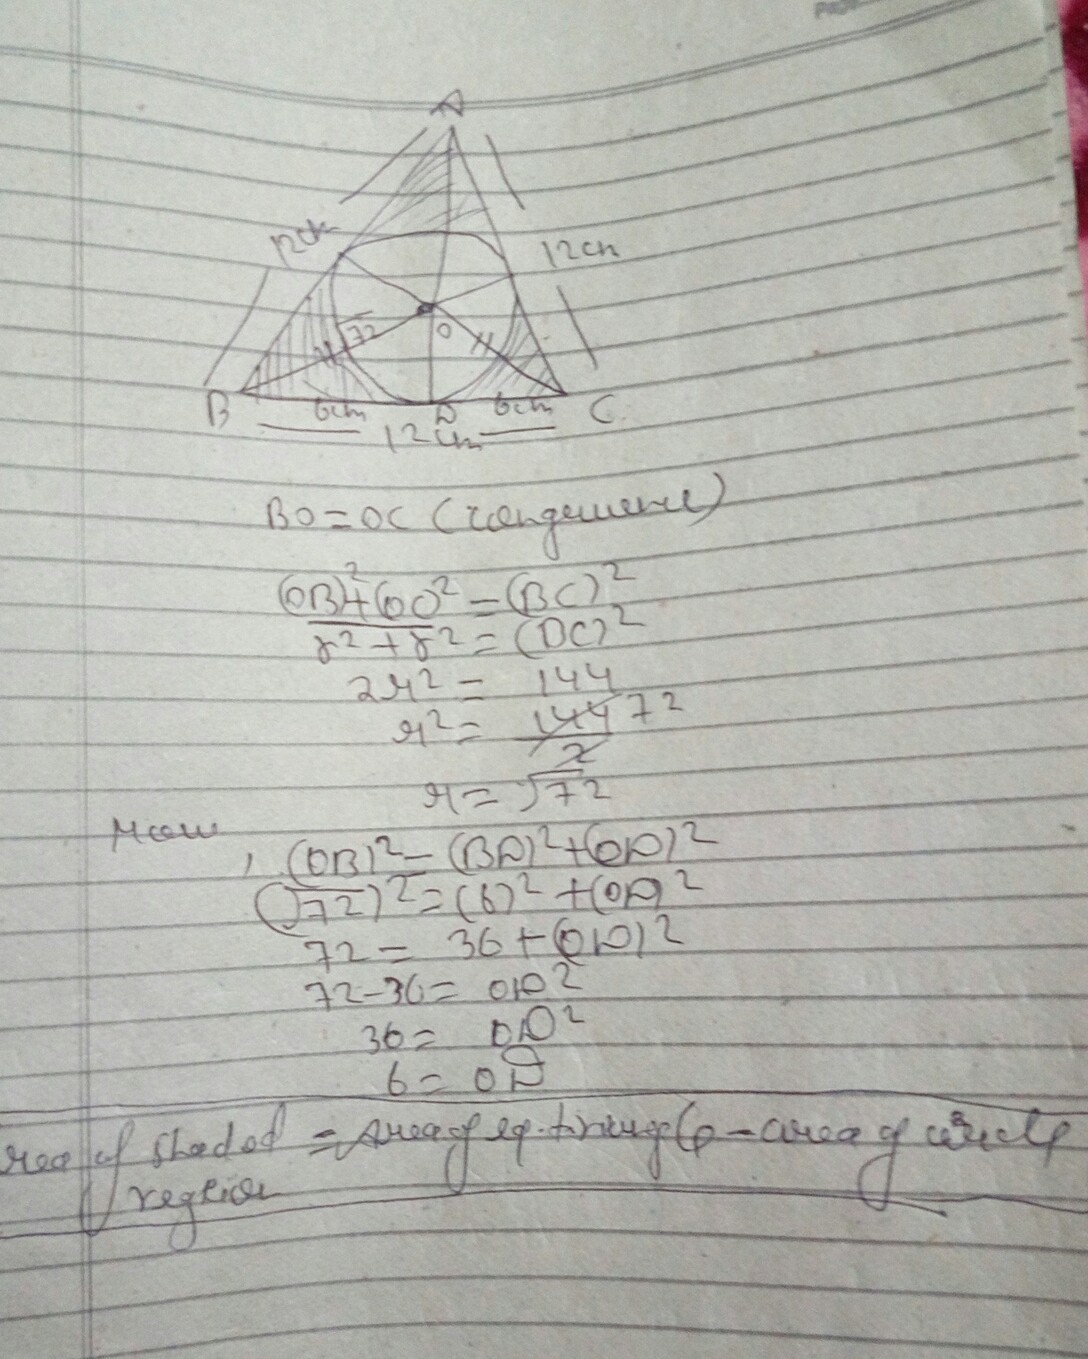 A
12cm
12cm
√72
O
B
6cm
D
6cm
C
12cm
BO=OC (congruence)
(OB)²+(OC)²=(BC)²
r²+r²=(DC)²
2r²=144
r²=144/2 72
r=√72
Now, (OB)²=(BD)²+(OD)²
(√72)²=(6)²+(OD)²
72=36+(OD)²
72-36=OD²
36=OD²
6=OD
Area of shaded =Area of eq.triangle-area of circle
region